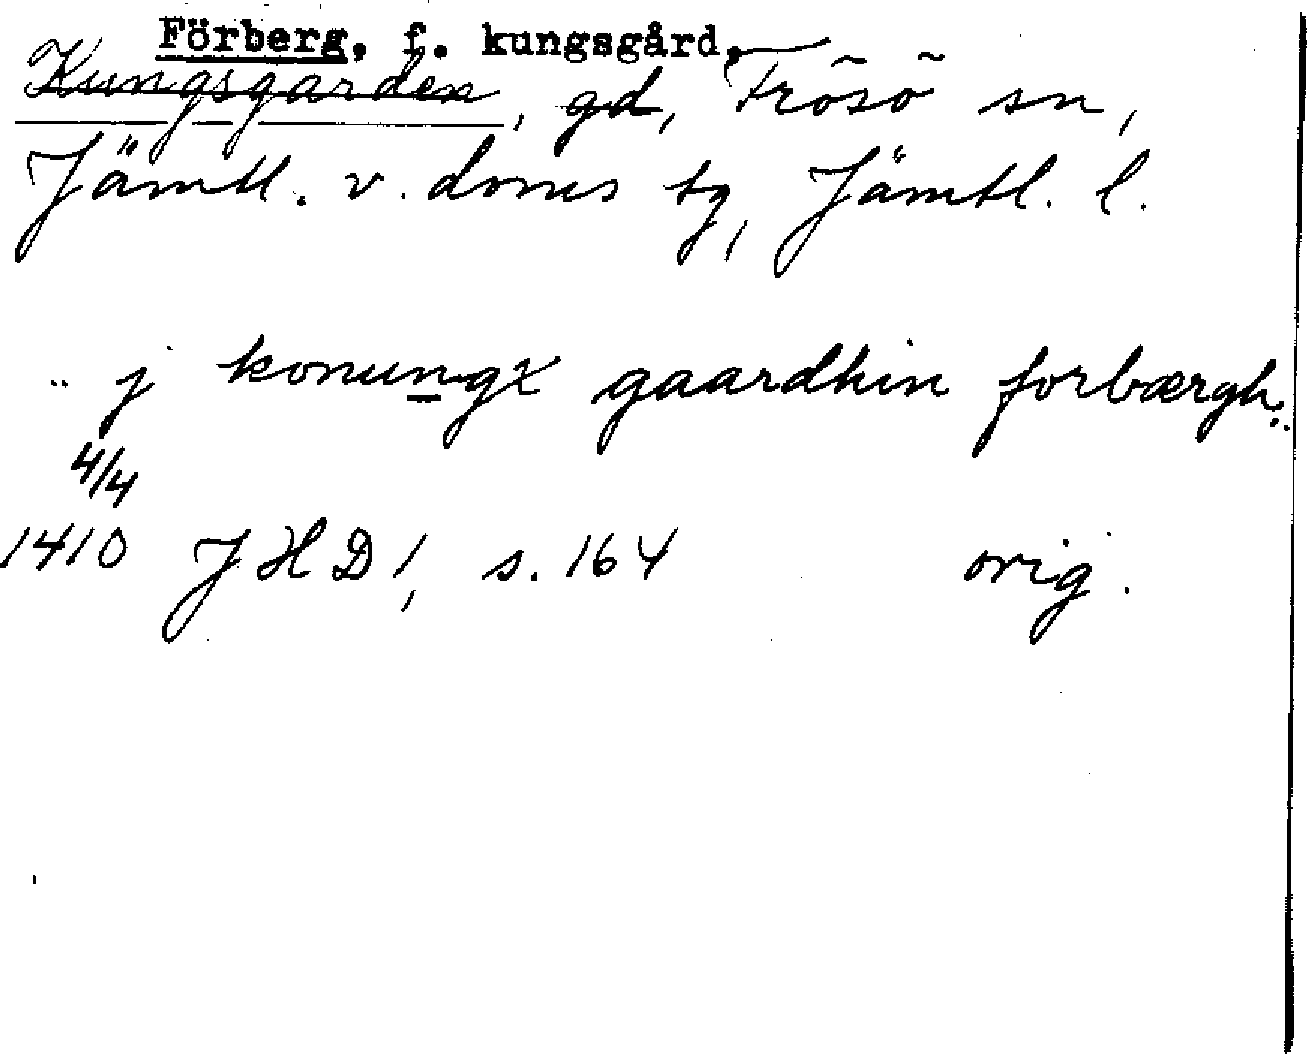 Förberg, f. kungsgård,
Kungsgarden, gd, Frösö sn,
Jämtl. v. doms tg, Jämtl. l.
.. j konungx gaardhin forbærgh..
4/4
1410 JHD 1, s. 164 orig.